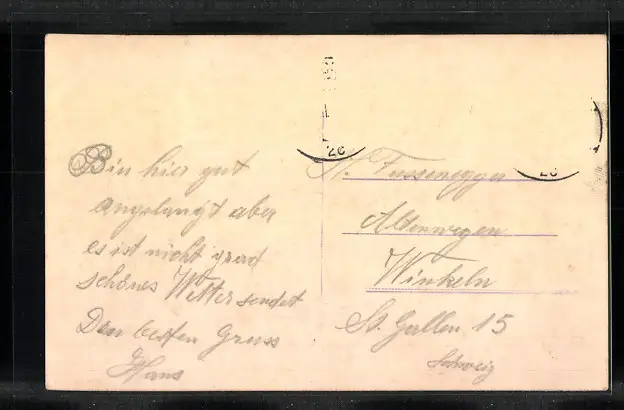 Bin hier gut
angelangt aber
es ist nicht grad
schönes Wetter sendet
Den besten Gruss
Hans
Fussenegger
Altenwegen
Winkeln
St. Gallen 15
Schweiz
26
26